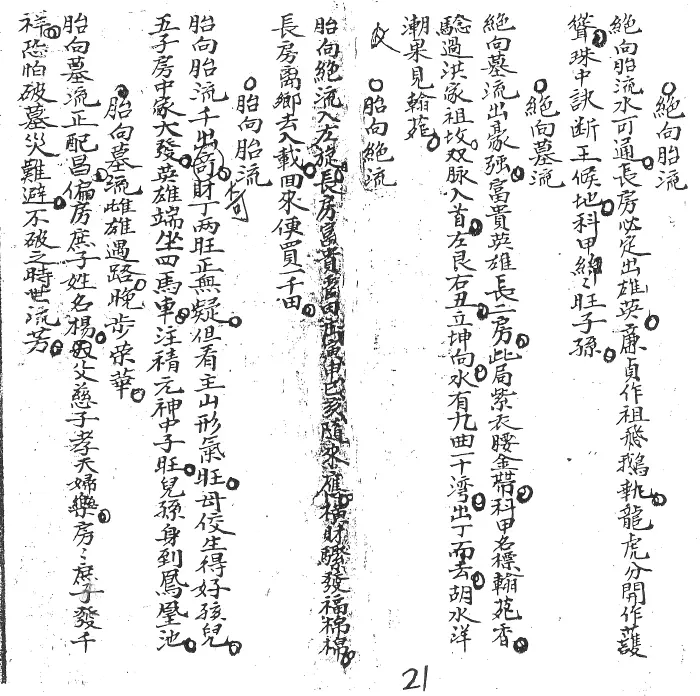 絕向胎流
絕向胎流水可通長房必定出雄英廉貞作祖飛鵝執龍虎分開作護
聳珠中訣斷王候地科甲綿〻旺子孫
絕向墓流
絕向墓流出豪強富貴英雄長二房此局紫衣腰金帶科甲名標翰苑香
驗過洪家祖坟双脈入首左艮右丑立坤向水有九曲十湾出丁而去胡水洋
潮果見翰苑
胎向絕流
胎向絕流入方旋長房富貴置田寅申巳亥隨來應橫財驟發福綿綿
長房离鄉去入載回來便買一千田
胎向胎流
胎向胎流千出奇財丁两旺正無疑但看主山形氣旺母佼生得好孩兒
奇
五子房中家大發英雄端坐四馬車注精元神中子旺兒孫身到鳳凰池
胎向墓流雌雄遇路晚步榮華
胎向墓流正配昌偏房庶子姓名楊父慈子孝夫婦樂房〻庶子發千
祥恐怕破墓災難避不破之時世流芳
21